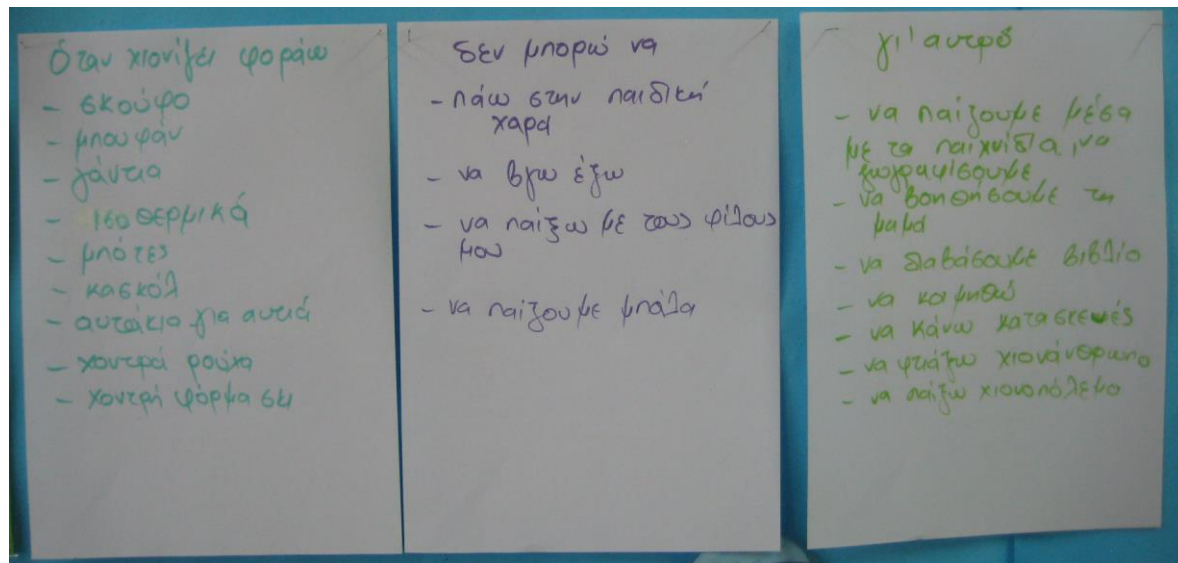 Όταν χιονίζει φοράω
- σκούφο
- μπουφάν
- γάντια
- ισοθερμικά
- μπότες
- κασκόλ
- αυτάκια για αυτιά
- χοντρά ρούχα
- χοντρή φόρμα σκι
δεν μπορώ να
- πάω στην παιδική
χαρά
- να βγω έξω
- να παίξω με τους φίλους
μου
- να παίζουμε μπάλα
γι' αυτρό
- να παίζουμε μέσα
με τα παιχνίδια, να
ζωγραφίσουμε
- να βοηθήσουμε τη
μαμά
- να διαβάσουμε βιβλίο
- να κοιμηθώ
- να κάνω κατασκευές
- να φτιάξω χιονάνθρωπο
- να παίξω χιονοπόλεμο